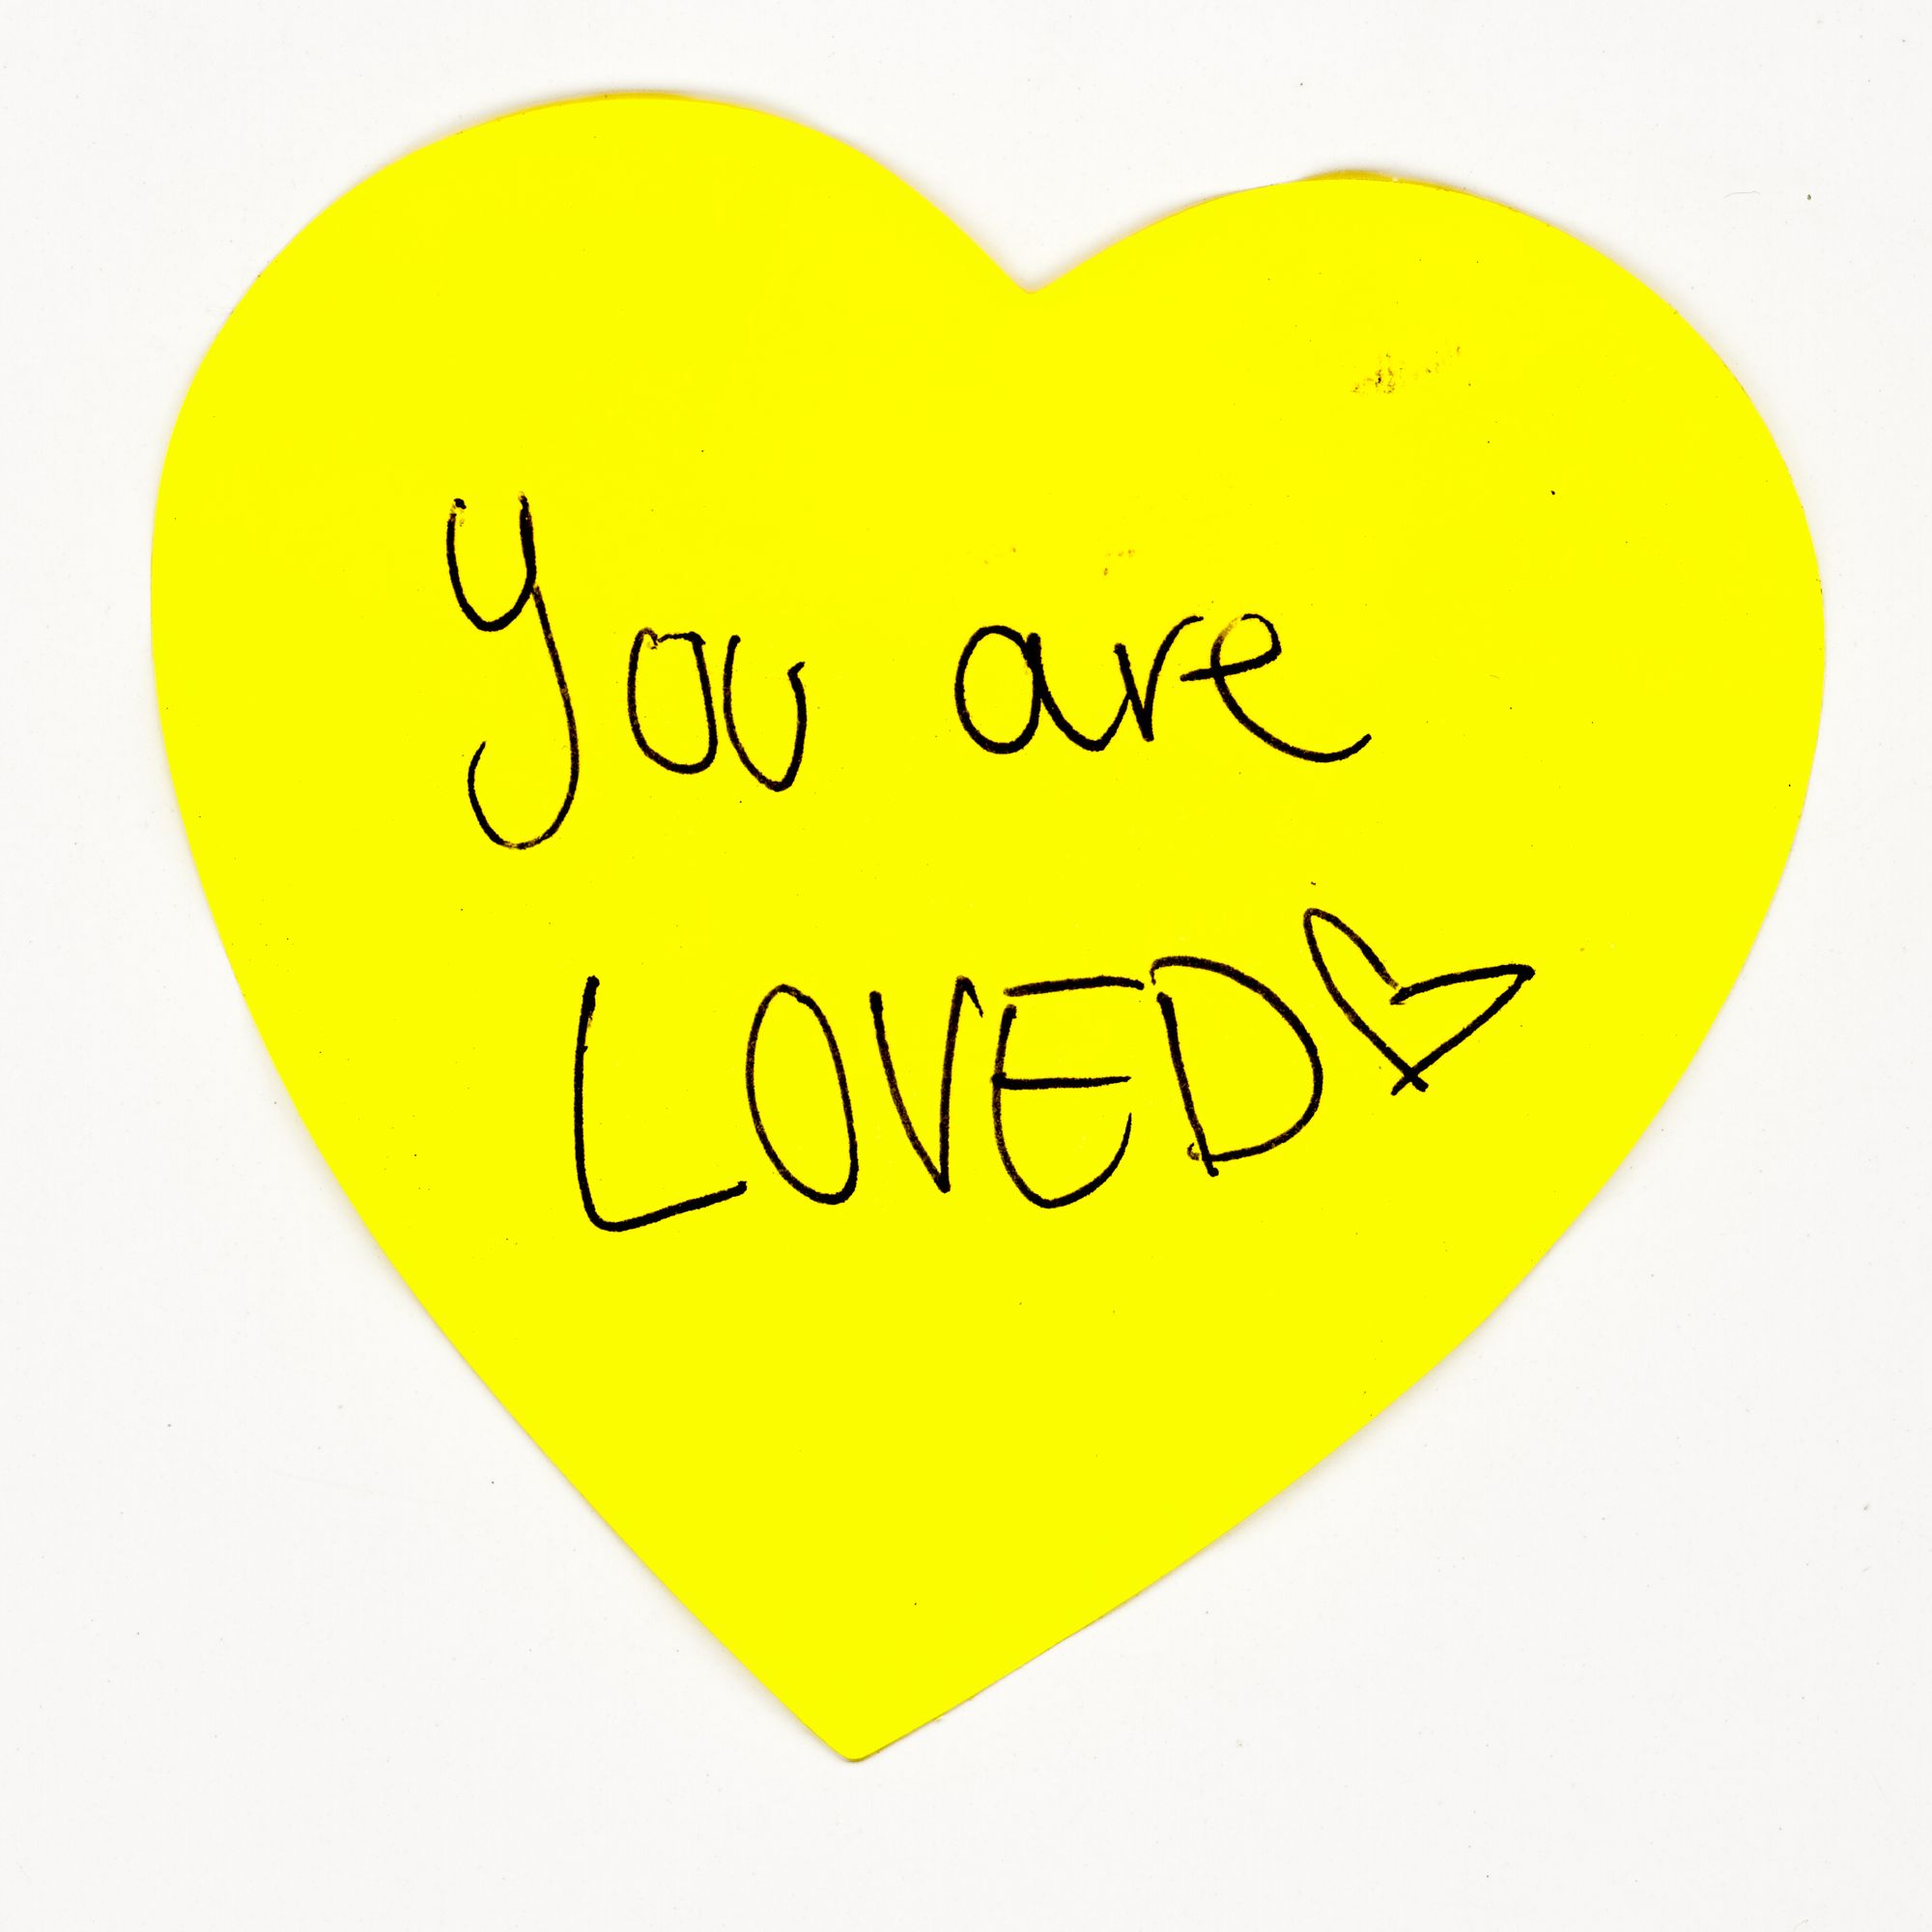 You are
LOVED♡